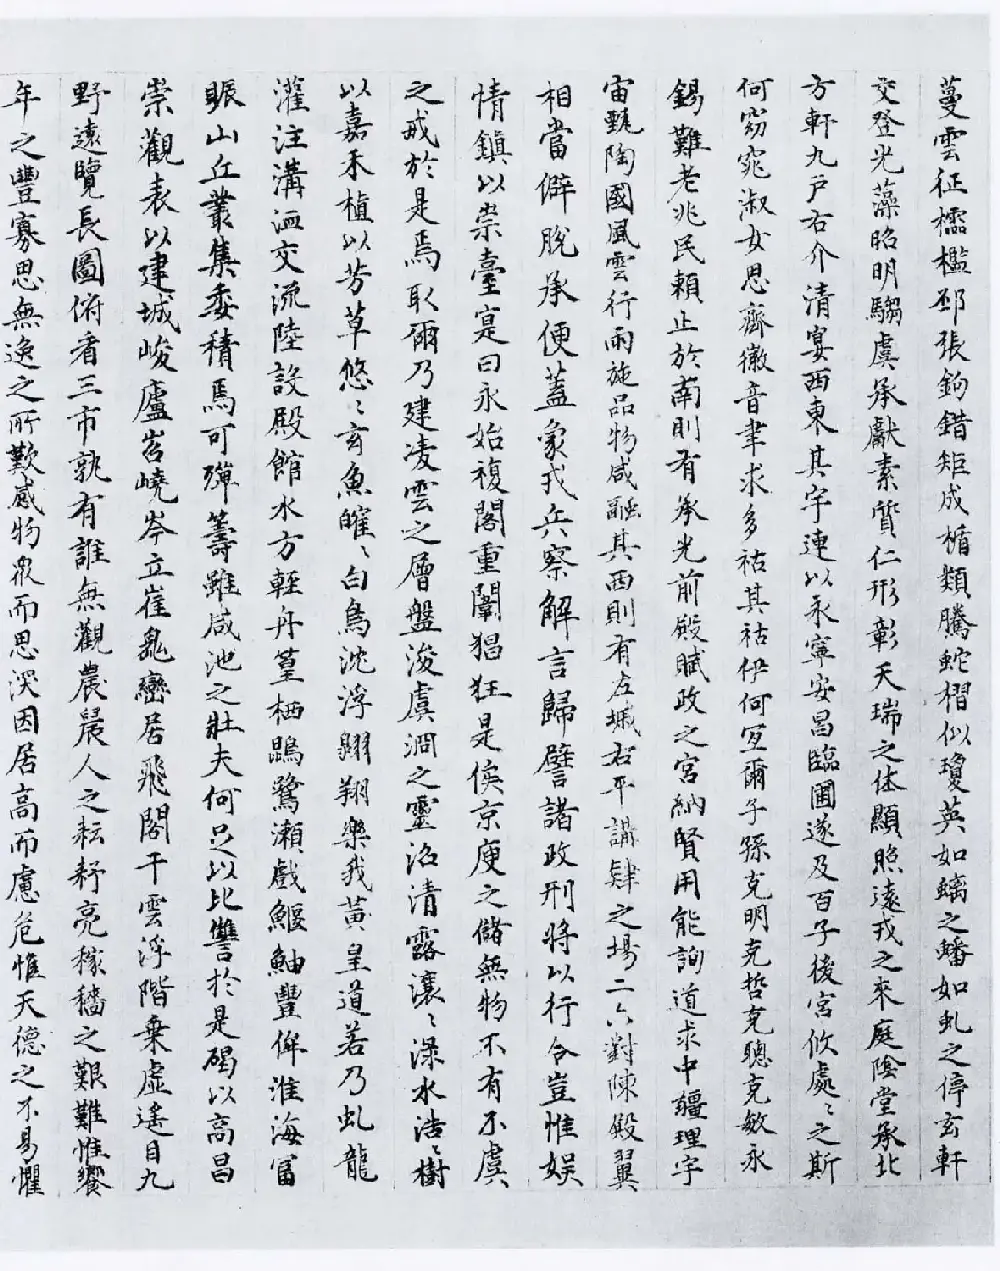 蔓雲征欞檻邳張鉤錯矩成楯類騰蛇槢似瓊英如螭之蟠如虬之停玄軒
交登光藻昭明騶虞承獻素質仁形彰天瑞之休顯照遠戎之來庭陰堂承北
方軒九戶右介清宴西東其宇連以永寧安昌臨圃遂及百子後宮攸處〻之斯
何窈窕淑女思齊徽音聿求多祜其祜伊何宜爾子孫克明克哲克聰克敏永
錫難老兆民賴止於南則有承光前殿賦政之宮納賢用能詢道求中疆理宇
宙甄陶國風雲行雨施品物咸融其西則有左墄右平講肄之場二六對陳殿翼
相當僻脫承便蓋象戎兵察解言歸譬諸政刑將以行令豈惟娛
情鎮以崇臺寔曰永始複閣重闈猖狂是俟京庾之儲無物不有不虞
之戒於是焉取爾乃建凌雲之層盤浚虞淵之靈沼清露瀼〻淥水浩〻樹
以嘉禾植以芳草悠〻玄魚皠〻白鳥沈浮翱翔樂我黃皇道若乃虬龍
灌注溝洫交流陸設殿館水方輕舟篁栖鵾鷺瀨戲鰋鮋豐侔淮海富
賑山丘叢集委積焉可殫籌雖咸池之壯夫何足以比讐於是碣以高昌
崇觀表以建城峻廬岧嶢岑立崔嵬巒居飛閣干雲浮階乘虛遙目九
野遠覽長圖俯看三市孰有誰無觀農人之耘耔亮稼穡之艱難惟饗
年之豐寡思無逸之所歎感物衆而思深因居高而慮危惟天德之不易懼